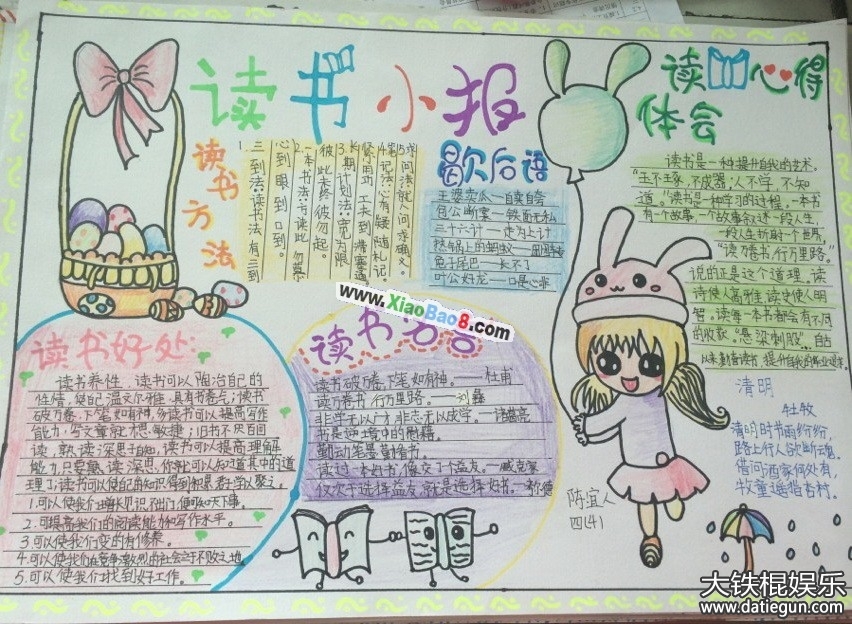 读书小报
读书方法
1.
三到法:读书法有三到
心到眼到口到。
2.一本书法:方读此勿慕
彼此未终彼勿起。
3.期计划法:宽为限
紧用功工夫到滞塞通
4.笔记法:心有疑随札记。
5.求问法:就人问求确义。
歇后语
王婆卖瓜—自卖自夸
包公断案—铁面无私
三十六计—走为上计
热锅上的蚂蚁—团团转
兔子尾巴—长不了
叶公好龙—口是心非
读书心得
体会
读书是一种提升自我的艺术,
“玉不琢,不成器,人不学,不知
道。”读书是一种学习的过程,一本书
有一个故事,一个故事叙述一段人生,
一段人生折射一个世界,
“读万卷书,行万里路。”
说的正是这个道理。读
诗使人高雅,读史使人明
智。读每一本书都会有不同
的收获。“悬梁刺股”、自古
www.XiaoBao8.com
读书好处:
读书养性,读书可以陶冶自己的
性情,使自己温文尔雅,具有书卷气;读书
破万卷,下笔如有神,多读书可以提高写作
能力,写文章就才思敏捷;旧书不厌百回
读,熟读深思子自知,读书可以提高理解
能力,只要熟读深思,你就可以知过其中的道
理了;读书可以使自己的知识得到积累,君子学以聚之。
1.可以使我们增长见识不出门便可知天下事。
2.可提高我们的阅读能力和写作水平。
3.可以使我们变的有修养。
4.可以使我们在竞争激烈的社会立于不败之地。
5.可以使我们找到好工作。
读书名言
读书破万卷,下笔如有神。—杜甫
读万卷书,行万里路。—刘彝
非学无以广才,非志无以成学。—诸葛亮
书是逆境中的慰藉。
勤动笔墨勤看书。
读过一本好书,像交了个益友。—臧克家
仅次于选择益友,就是选择好书。
陈宜人
四(4)
清明
杜牧
清明时节雨纷纷,
路上行人欲断魂。
借问酒家何处有,
牧童遥指杏村。
大铁棍娱乐
www.datiegun.com